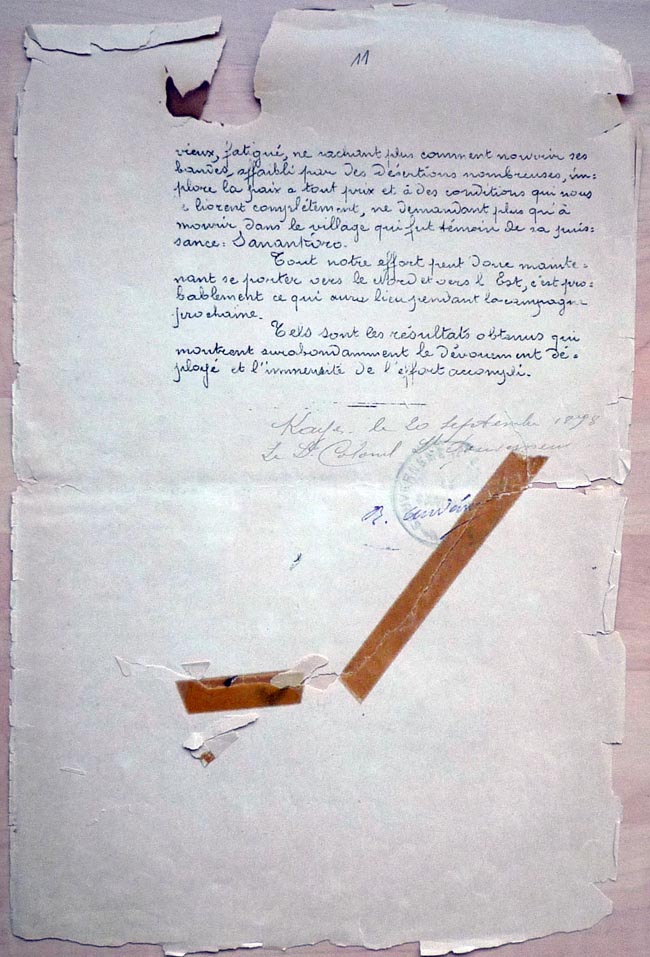 11
vieux, fatigué, ne sachant plus comment nourrir ses
bandes, affaibli par des désertions nombreuses, im-
plore la paix à tout prix et à des conditions qui nous
le livrent complètement, ne demandant plus qu'à
mourir dans le village qui fut témoin de sa puis-
sance: Sanankoro.
Tout notre effort peut donc mainte-
nant se porter vers le Nord et vers l'Est, c'est pro-
bablement ce qui aura lieu pendant la campagne
prochaine.
Tels sont les résultats obtenus qui
montrent surabondamment le dévouement dé-
ployé et l'immensité de l'effort accompli.
Kayes le 20 Septembre 1898
Le Lt Colonel Lt Gouverneur